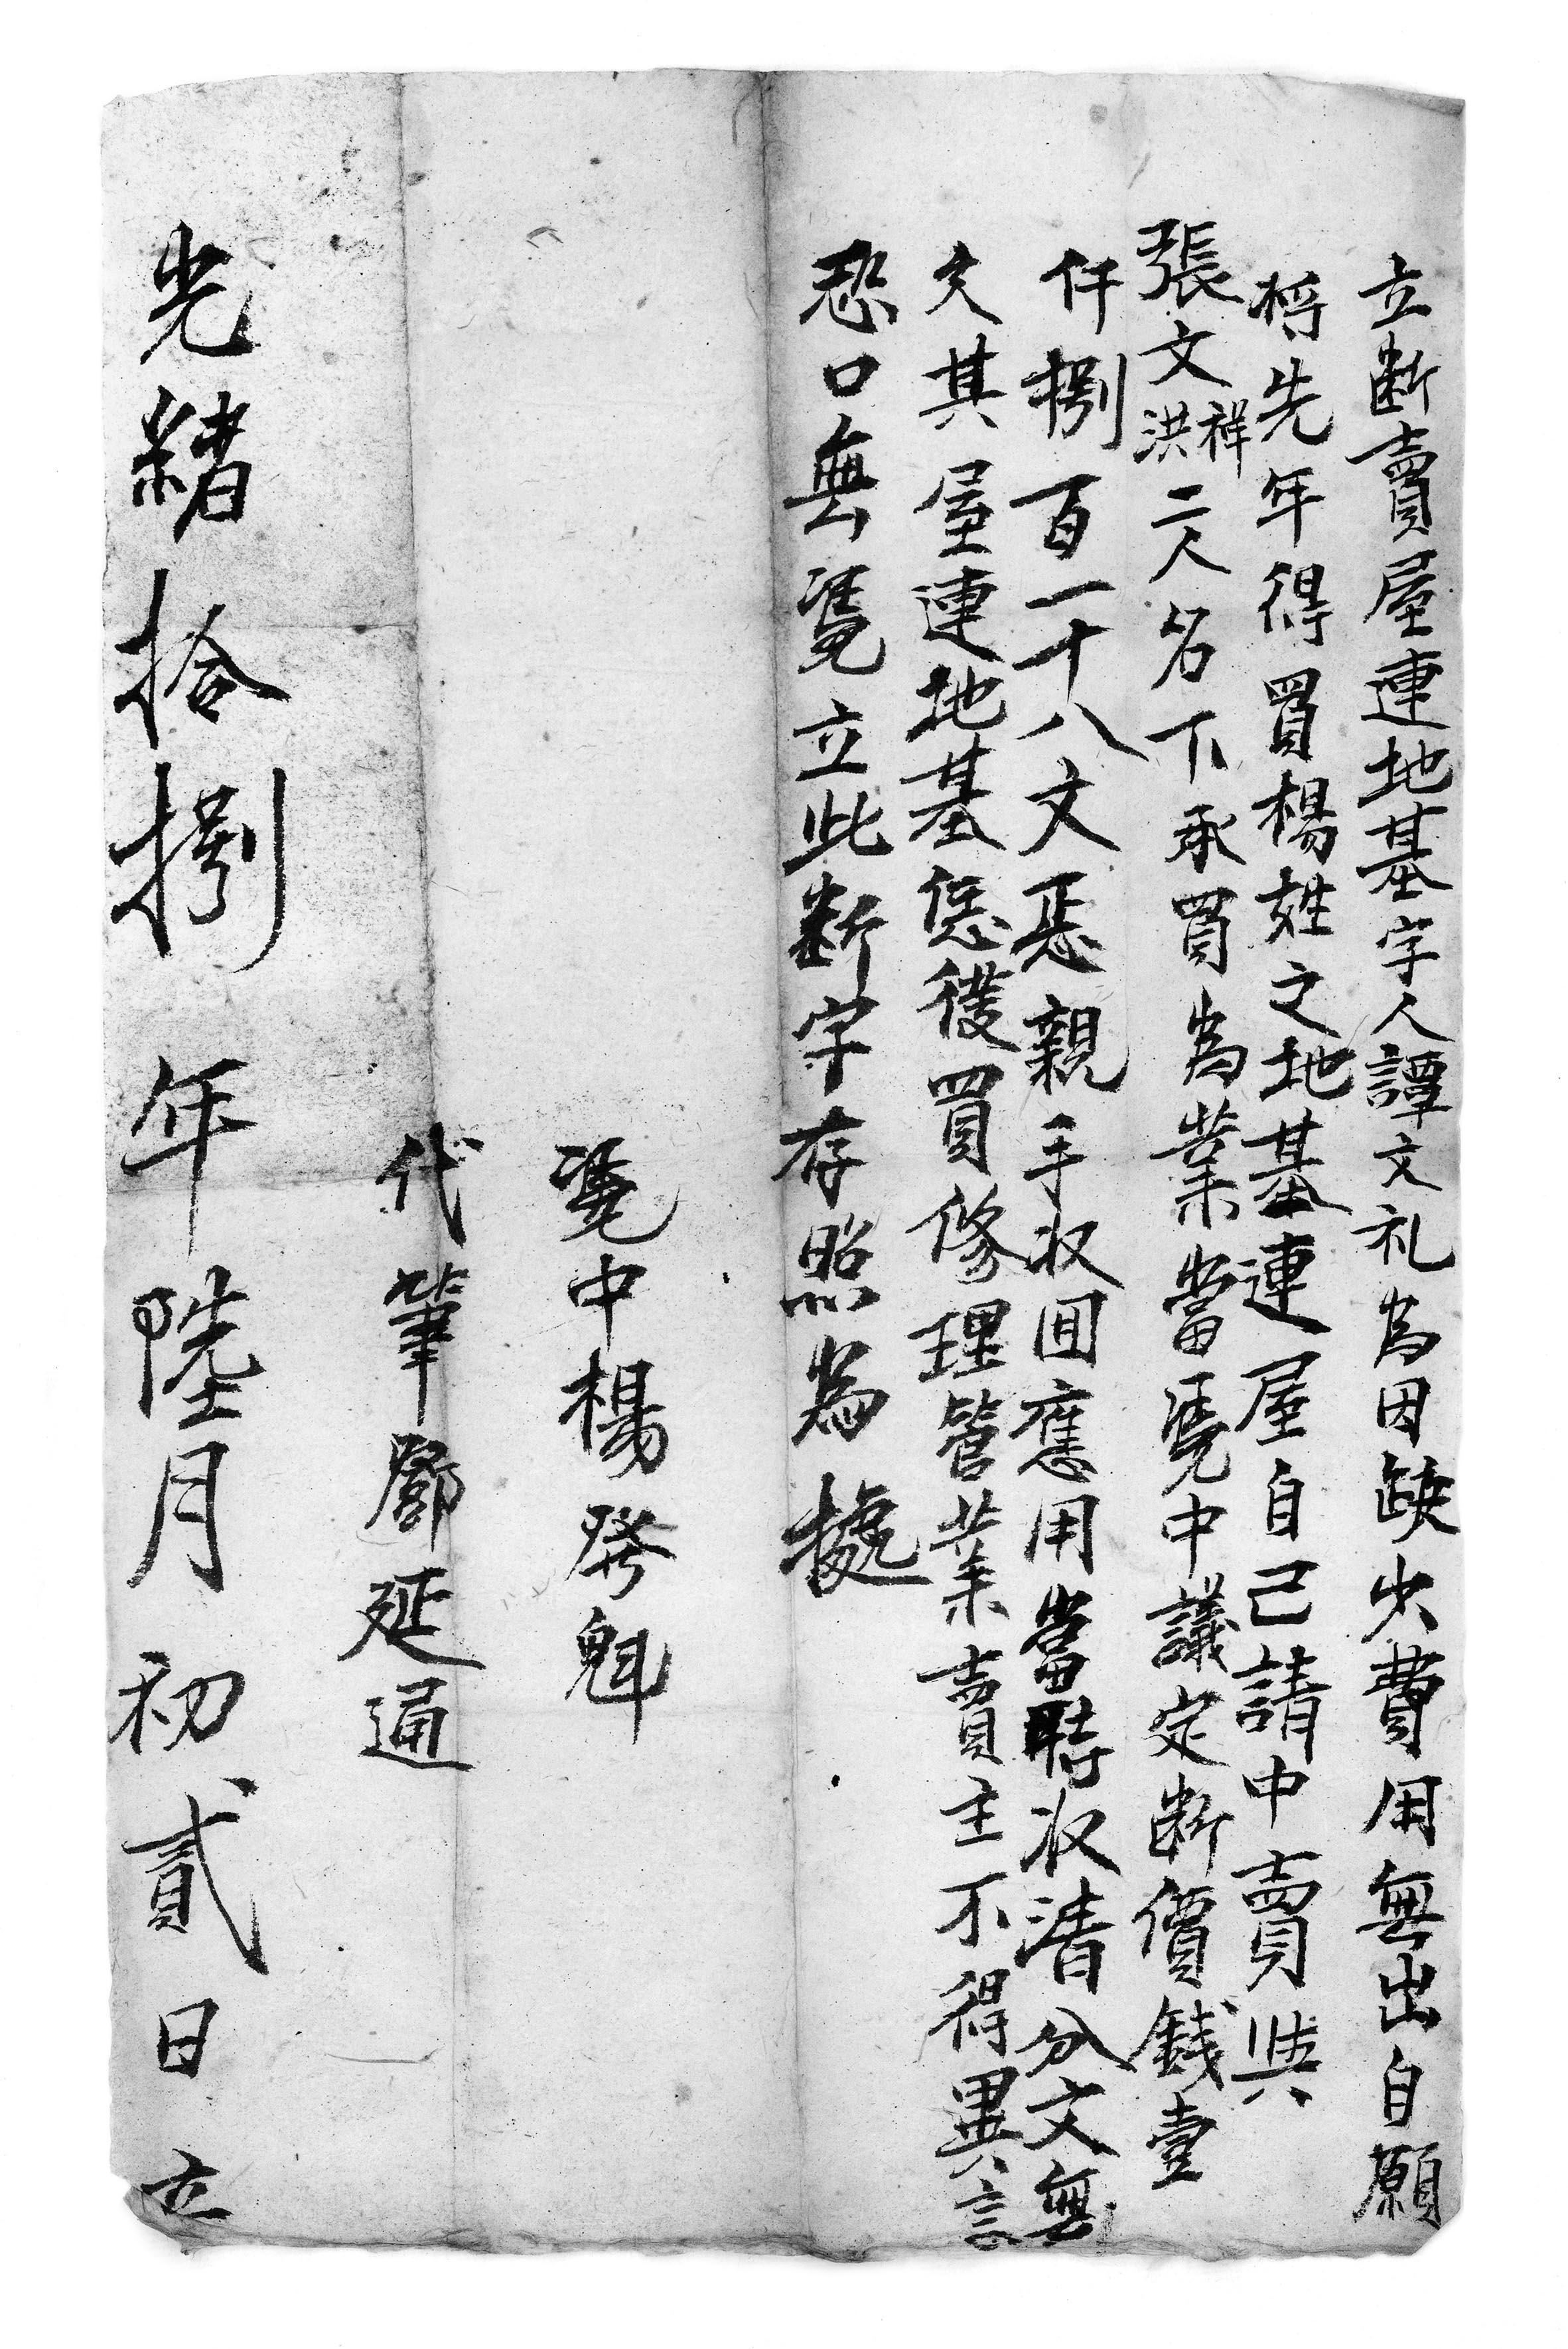 立断賣屋連地基字人譚文礼為因缺少費用無出自願
將先年得買楊姓之地基連屋自己請中賣與
張文祥洪二人名下承買為業當凴中議定断價錢壹
仟捌百一十八文悪親手收囬應用當時收清分文無
欠其屋連地基恁從買修理管業賣主不得異言
恐口無凴立此断字存照為據
凴中楊發魁
代筆鄧延通
光緒拾捌年陸月初貳日立